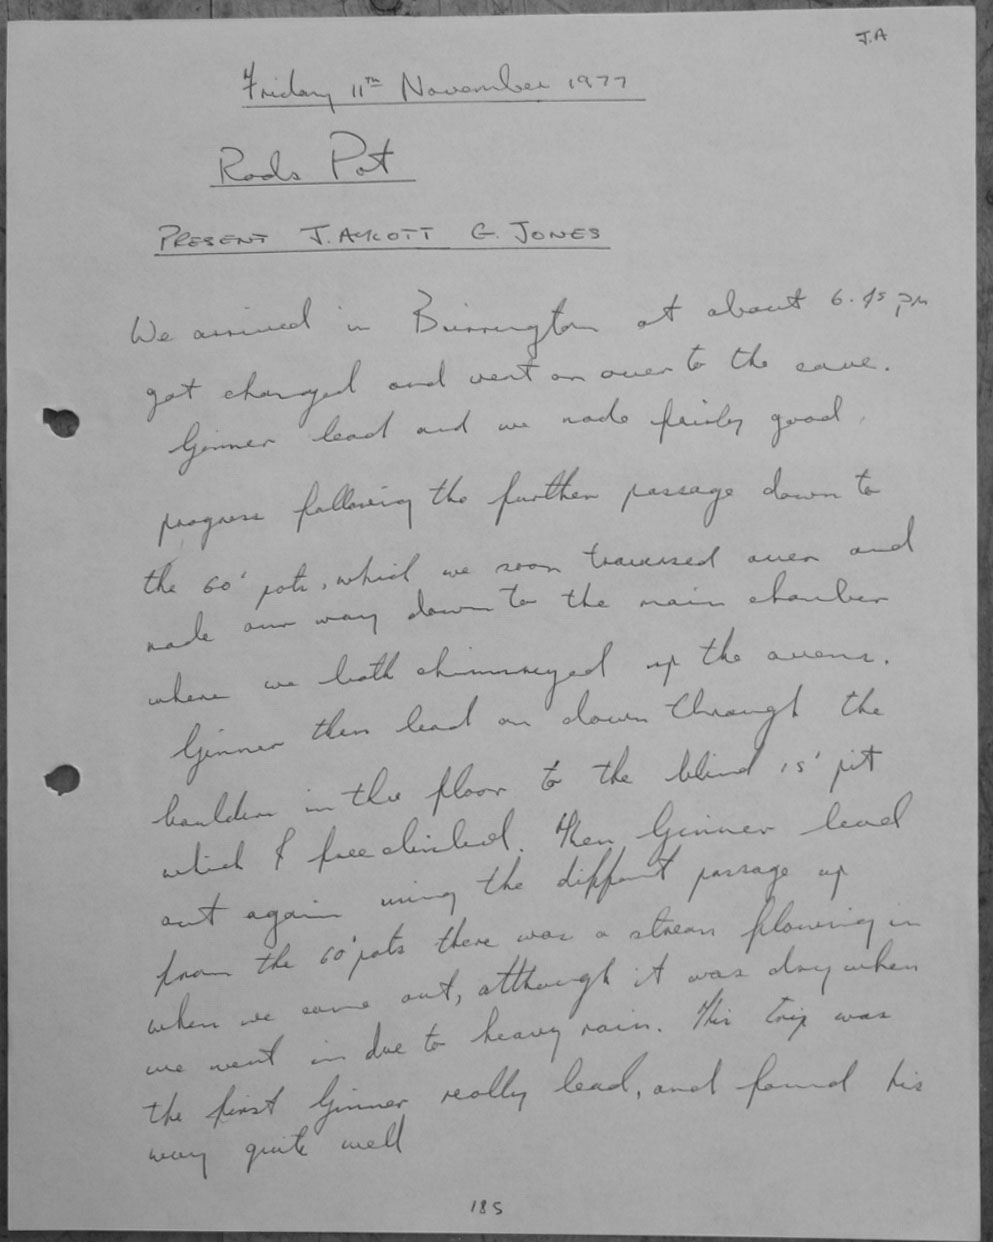 J.A
Friday 11th November 1977
Rods Pot
PRESENT J. AYCOTT G. JONES
We arrived in Burrington at about 6.45 pm
got changed and went on over to the cave.
Ginner lead and we made fairly good
progress following the further passage down to
the 60' pots, which we soon traversed over and
made our way down to the main chamber
where we both chimneyed up the avens.
Ginner then lead on down through the
boulders in the floor to the blind 15' pit
which I free climbed. Then Ginner lead
out again using the diffrent passage up
from the 60' pots there was a stream flowing in
when we came out, although it was dry when
we went in due to heavy rain. This trip was
the first Ginner really lead, and found his
way quite well
185